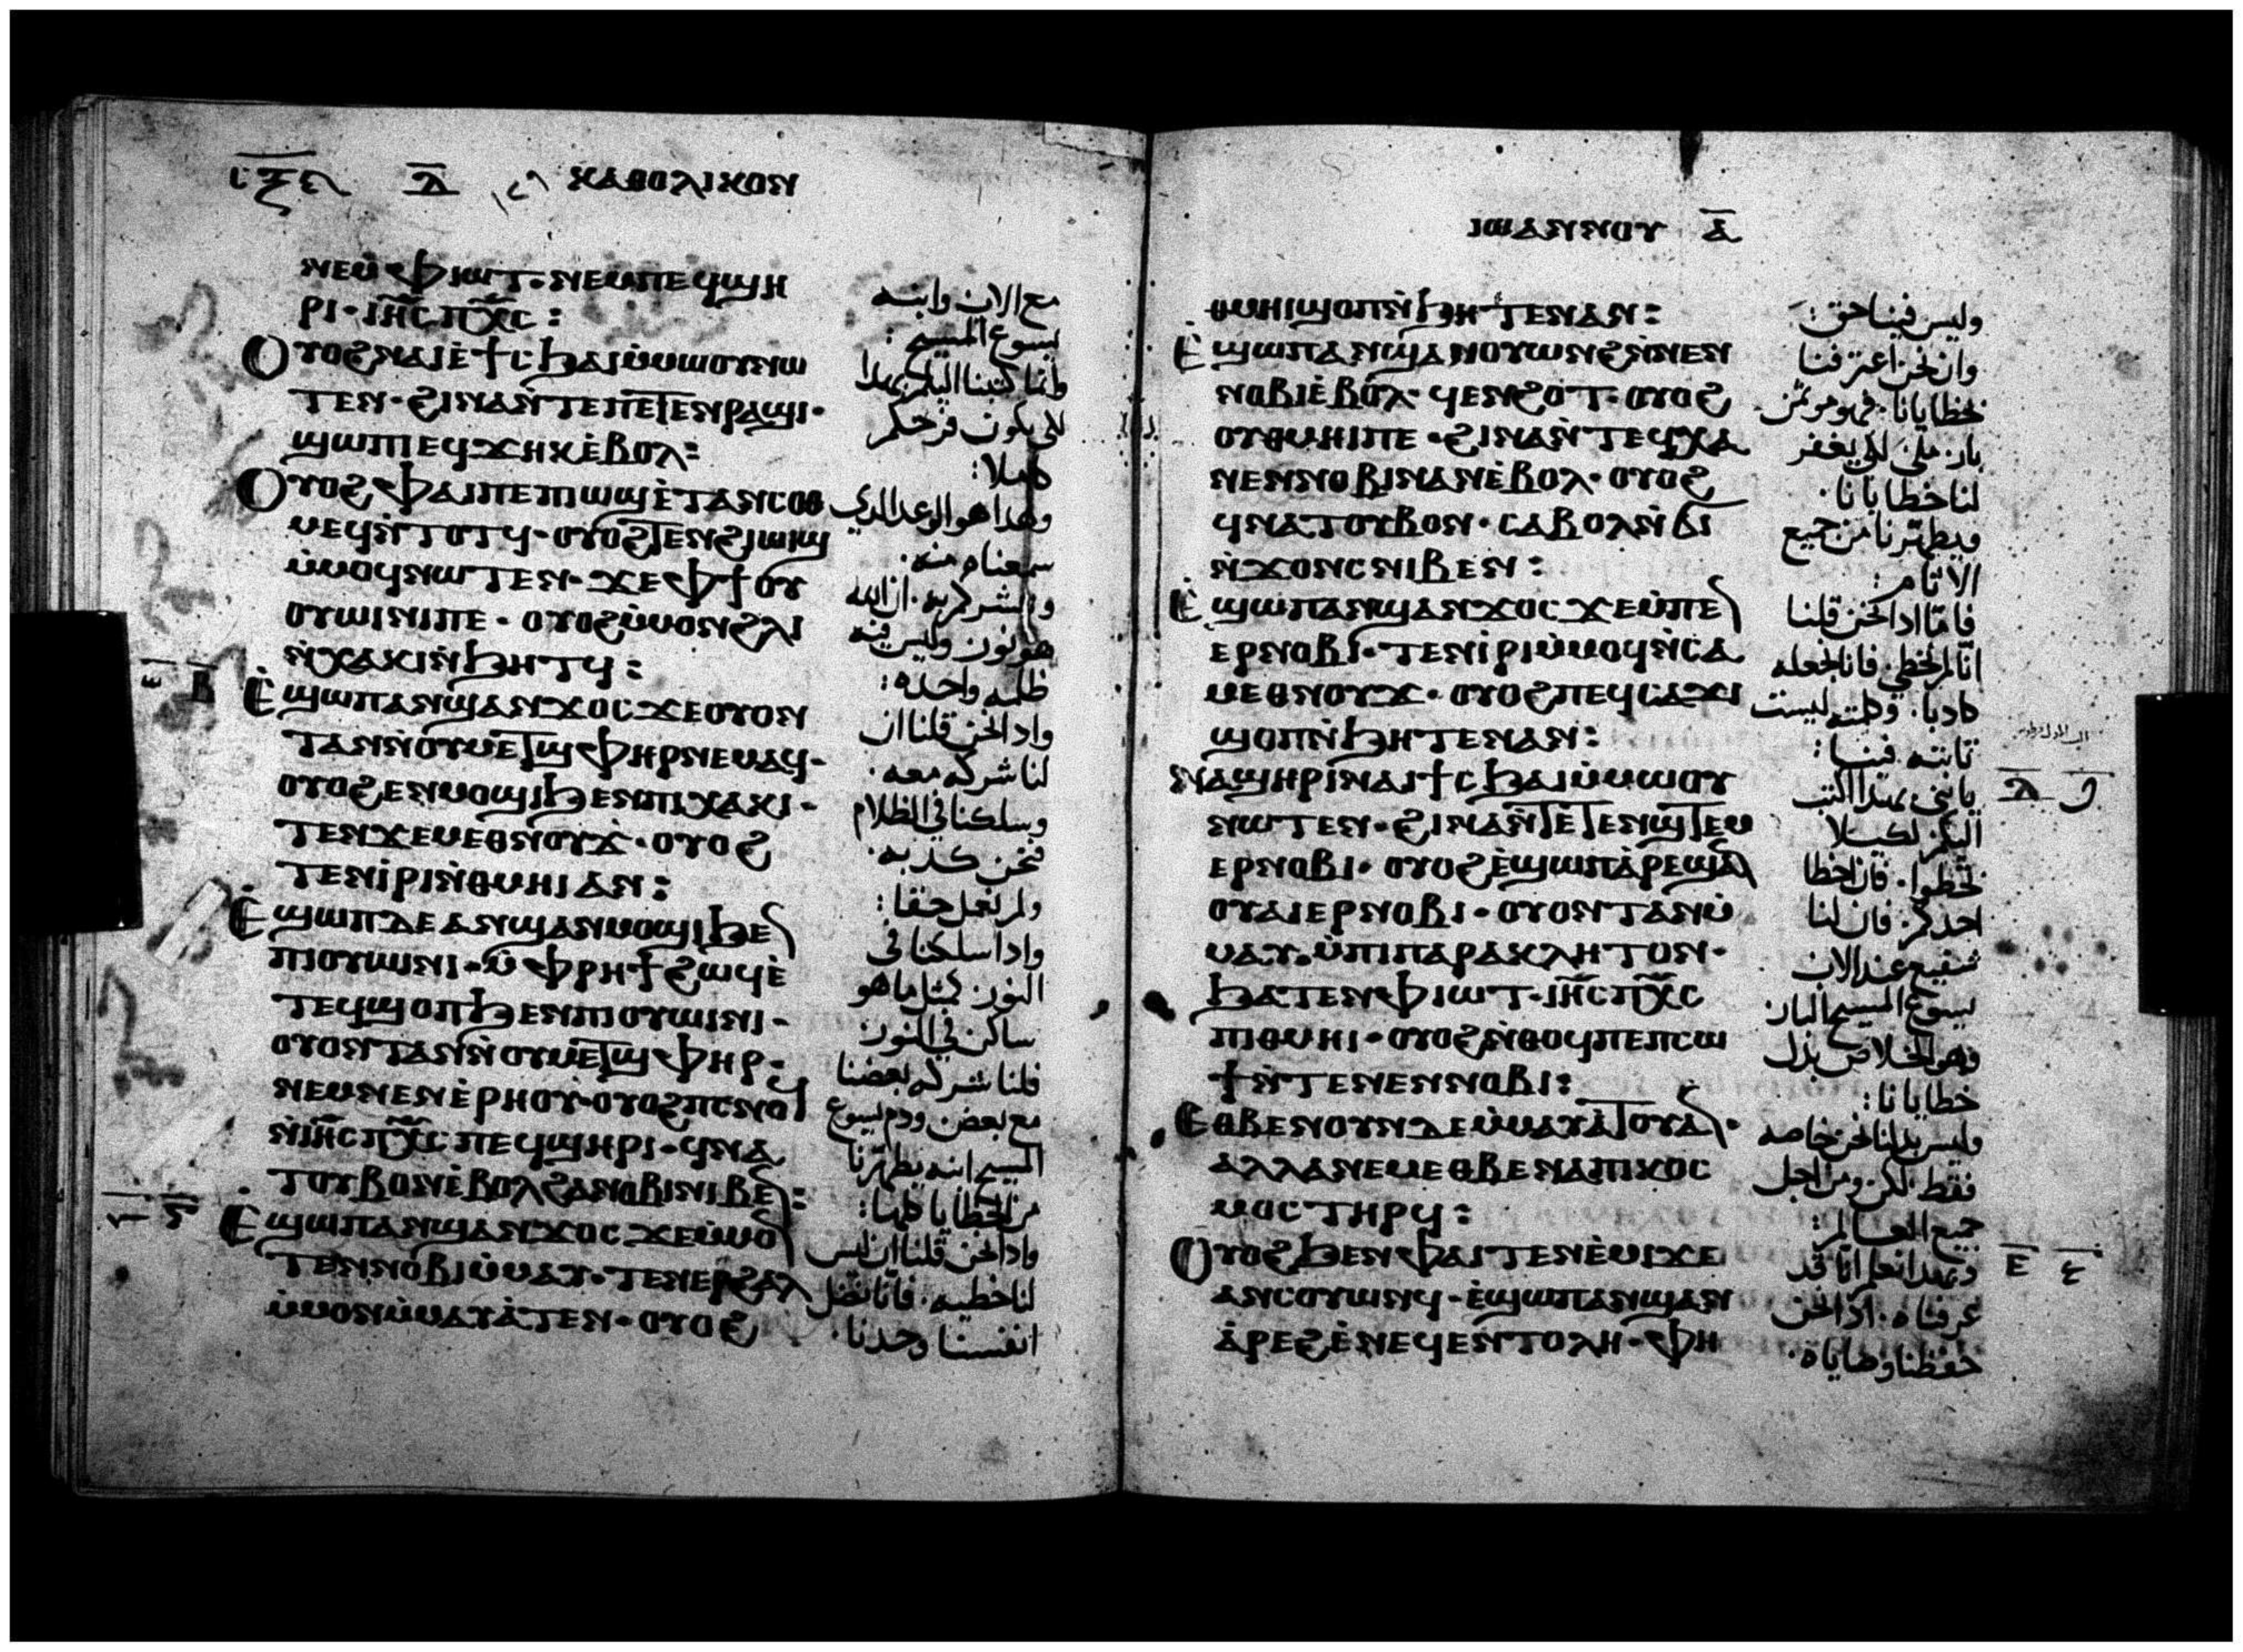 ⲕⲁⲑⲟⲗⲓⲕⲟⲛ
ⲛⲉⲙⲫⲓⲱⲧ·ⲛⲉⲙⲡⲉϥϣⲏ
ⲣⲓ·ⲓⲏ̅ⲥ̅ⲡⲭ̅ⲥ̅:
Ⲟⲩⲟϩⲛⲁⲓⲉ̀ϯⲥϧⲁⲓⲙ̀ⲙⲱⲟⲩⲛⲱ
ⲧⲉⲛ·ϩⲓⲛⲁⲛ̀ⲧⲉⲡⲉⲧⲉⲛⲣⲁϣⲓ·
ϣⲱⲡⲓⲉϥϫⲏⲕⲉ̀ⲃⲟⲗ:
Ⲟⲩⲟϩⲫⲁⲓⲡⲉⲡⲓⲱϣⲉ̀ⲧⲁⲛⲥⲟⲑ
ⲙⲉϥⲛ̀ⲧⲟⲧϥ·ⲟⲩⲟϩⲧⲉⲛϩⲓⲱⲓϣ
ⲙ̀ⲙⲟϥⲛⲱⲧⲉⲛ·ϫⲉⲫϯⲟⲩ
ⲟⲩⲱⲓⲛⲓⲡⲉ·ⲟⲩⲟϩⲙ̀ⲙⲟⲛϩⲗⲓ
ⲛ̀ⲭⲁⲕⲓⲛ̀ϧⲏⲧϥ:
Ⲉ̀ϣⲱⲡⲁⲛϣⲁⲛϫⲟⲥϫⲉⲟⲩⲟⲛ
ⲧⲁⲛⲛ̀ⲟⲩⲙⲉⲧϣⲫⲏⲣⲛⲉⲙⲁϥ·
ⲟⲩⲟϩⲉⲛⲙⲟϣⲓϧⲉⲛⲡⲓⲭⲁⲕⲓ·
ⲧⲉⲛϫⲉⲙⲉⲑⲛⲟⲩϫ·ⲟⲩⲟϩ
ⲧⲉⲛⲓ̀ⲣⲓⲛ̀ⲑⲙⲏⲓⲁⲛ:
Ⲉ̀ϣⲱⲡⲇⲉⲁⲛϣⲁⲛⲙⲟϣⲓϧⲉ
ⲡⲓⲟⲩⲱⲓⲛⲓ·ⲙ̀ⲫⲣⲏϯϩⲱϥⲉ̀
ⲧⲉϥϣⲟⲡϧⲉⲛⲡⲓⲟⲩⲱⲓⲛⲓ·
ⲟⲩⲟⲛⲧⲁⲛⲛ̀ⲟⲩⲙⲉⲧϣⲫⲏⲣ·
ⲛⲉⲙⲛⲉⲛⲉ̀ⲣⲏⲟⲩ·ⲟⲩⲟϩⲡⲥⲛⲟϥ
ⲛ̀ⲓⲏ̅ⲥ̅ⲡⲭ̅ⲥ̅ⲡⲉϥϣⲏⲣⲓ·ϥⲛⲁ
ⲧⲟⲩⲃⲟⲛⲉ̀ⲃⲟⲗϩⲁⲛⲟⲃⲓⲛⲓⲃⲉ:
Ⲉ̀ϣⲱⲡⲁⲛϣⲁⲛϫⲟⲥϫⲉⲙ̀ⲙⲟ
ⲧⲉⲛⲛⲟⲃⲓⲙ̀ⲙⲁⲩ·ⲧⲉⲛⲉⲣϩⲁⲗ
ⲙ̀ⲙⲟⲛⲙ̀ⲙⲁⲩⲁ̀ⲧⲉⲛ·ⲟⲩⲟϩ
مع الاب وابنه
يسوع المسيح:
وانما كتبنا اليكم بهذا
لكي يكون فرحكم
كاملا:
وهذا هو الوعد الذي
سمعناه منه.
ونبشركم به. ان الله
هو نور وليس فيه
ظلمه واحده:
واذا نحن قلنا ان
لنا شركه معه.
وسلكنا في الظلام
فنحن كذبه.
ولم نعمل حقا:
واذا سلكنا في
النور كمثل ما هو
ساكن في النور
فلنا شركه بعضنا
مع بعض ودم يسوع
المسيح ابنه يطهرنا
من الخطايا كلها:
واذا نحن قلنا ان ليس
لنا خطيه. فانا نضل
انفسنا وحدنا.
ⲓⲱⲁⲛⲛⲟⲩ ⲁ̅
ⲑⲙⲏⲓϣⲟⲡⲛ̀ϧⲏⲧⲉⲛⲁⲛ:
Ⲉ̀ϣⲱⲡⲁⲛϣⲁⲛⲟⲩⲱⲛϩⲛ̀ⲛⲉⲛ
ⲛⲟⲃⲓⲉ̀ⲃⲟⲗ·ϥⲉⲛϩⲟⲧ·ⲟⲩⲟϩ
ⲟⲩⲑⲙⲏⲓⲡⲉ·ϩⲓⲛⲁⲛ̀ⲧⲉϥⲭⲁ
ⲛⲉⲛⲛⲟⲃⲓⲛⲁⲛⲉ̀ⲃⲟⲗ·ⲟⲩⲟϩ
ϥⲛⲁⲧⲟⲩⲃⲟⲛ·ⲥⲁⲃⲟⲗⲛ̀ϭⲓ
ⲛ̀ϫⲟⲛⲥⲛⲓⲃⲉⲛ:
Ⲉ̀ϣⲱⲡⲁⲛϣⲁⲛϫⲟⲥϫⲉⲙ̀ⲡⲉ
ⲉⲣⲛⲟⲃⲓ·ⲧⲉⲛⲓ̀ⲣⲓⲙ̀ⲙⲟϥⲛ̀ⲥⲁ
ⲙⲉⲑⲛⲟⲩϫ·ⲟⲩⲟϩⲡⲉϥⲥⲁϫⲓ
ϣⲟⲡⲛ̀ϧⲏⲧⲉⲛⲁⲛ:
ⲛⲁϣⲏⲣⲓⲛⲁⲓϯⲥϧⲁⲓⲙ̀ⲙⲱⲟⲩ
ⲛⲱⲧⲉⲛ·ϩⲓⲛⲁⲛ̀ⲧⲉⲧⲉⲛϣⲧⲉⲙ
ⲉⲣⲛⲟⲃⲓ·ⲟⲩⲟϩⲉ̀ϣⲱⲡⲁ̀ⲣⲉϣⲁ
ⲟⲩⲁⲓⲉⲣⲛⲟⲃⲓ·ⲟⲩⲟⲛⲧⲁⲛⲙ̀
ⲙⲁⲩ·ⲙ̀ⲡⲓⲡⲁⲣⲁⲕⲗⲏⲧⲟⲛ·
ϧⲁⲧⲉⲛⲫⲓⲱⲧ·ⲓⲏ̅ⲥ̅ⲡⲭ̅ⲥ̅
ⲡⲓⲑⲙⲏⲓ·ⲟⲩⲟϩⲛ̀ⲑⲟϥⲡⲉⲡⲥⲱ
ϯⲛ̀ⲧⲉⲛⲉⲛⲛⲟⲃⲓ:
Ⲉⲑⲃⲉⲛⲟⲩⲛⲇⲉⲙ̀ⲙⲁⲩⲁ̀ⲧⲟⲩⲁ·
ⲁⲗⲗⲁⲛⲉⲙⲉⲑⲃⲉⲛⲁⲡⲓⲕⲟⲥ
ⲙⲟⲥⲧⲏⲣϥ:
Ⲟⲩⲟϩϧⲉⲛⲫⲁⲓⲧⲉⲛⲉ̀ⲙⲓϫⲉ
ⲁⲛⲥⲟⲩⲱⲛϥ·ⲉ̀ϣⲱⲡⲁⲛϣⲁⲛ
ⲁ̀ⲣⲉϩⲉ̀ⲛⲉϥⲉⲛⲧⲟⲗⲏ·ⲫⲏ
وليس فينا حق:
وان نحن اعترفنا
بخطايانا. فهو موتمن
بار. ملي لكي يغفر
لنا خطايانا.
ويطهرنا من جميع
الاثام:
فاما اذا نحن قلنا
انا لم نخطي. فانا نجعله
كاذبا. وكلمته ليست
ثابته فينا:
يا بني بهذا اكتب
اليكم لكيلا
تخطوا. فان اخطا
احدكم. فان لنا
شفيع عند الاب
يسوع المسيح البار
وهو الخلاص بدل
خطايانا:
وليس بدلنا نحن خاصه
فقط. لكن ومن اجل
جميع العالم:
وبهذا نعلم انا قد
عرفناه. اذا نحن
حفظنا وصاياه.
ⲃ̅
ⲅ̅
ⲇ̅
ⲉ̅